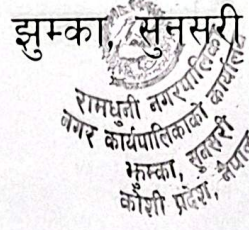 झुम्का, सुनसरी
रामधुनी नगरपालिका
नगर कार्यपालिकाको कार्यालय
झुम्का, सुनसरी
कोशी प्रदेश, नेपाल